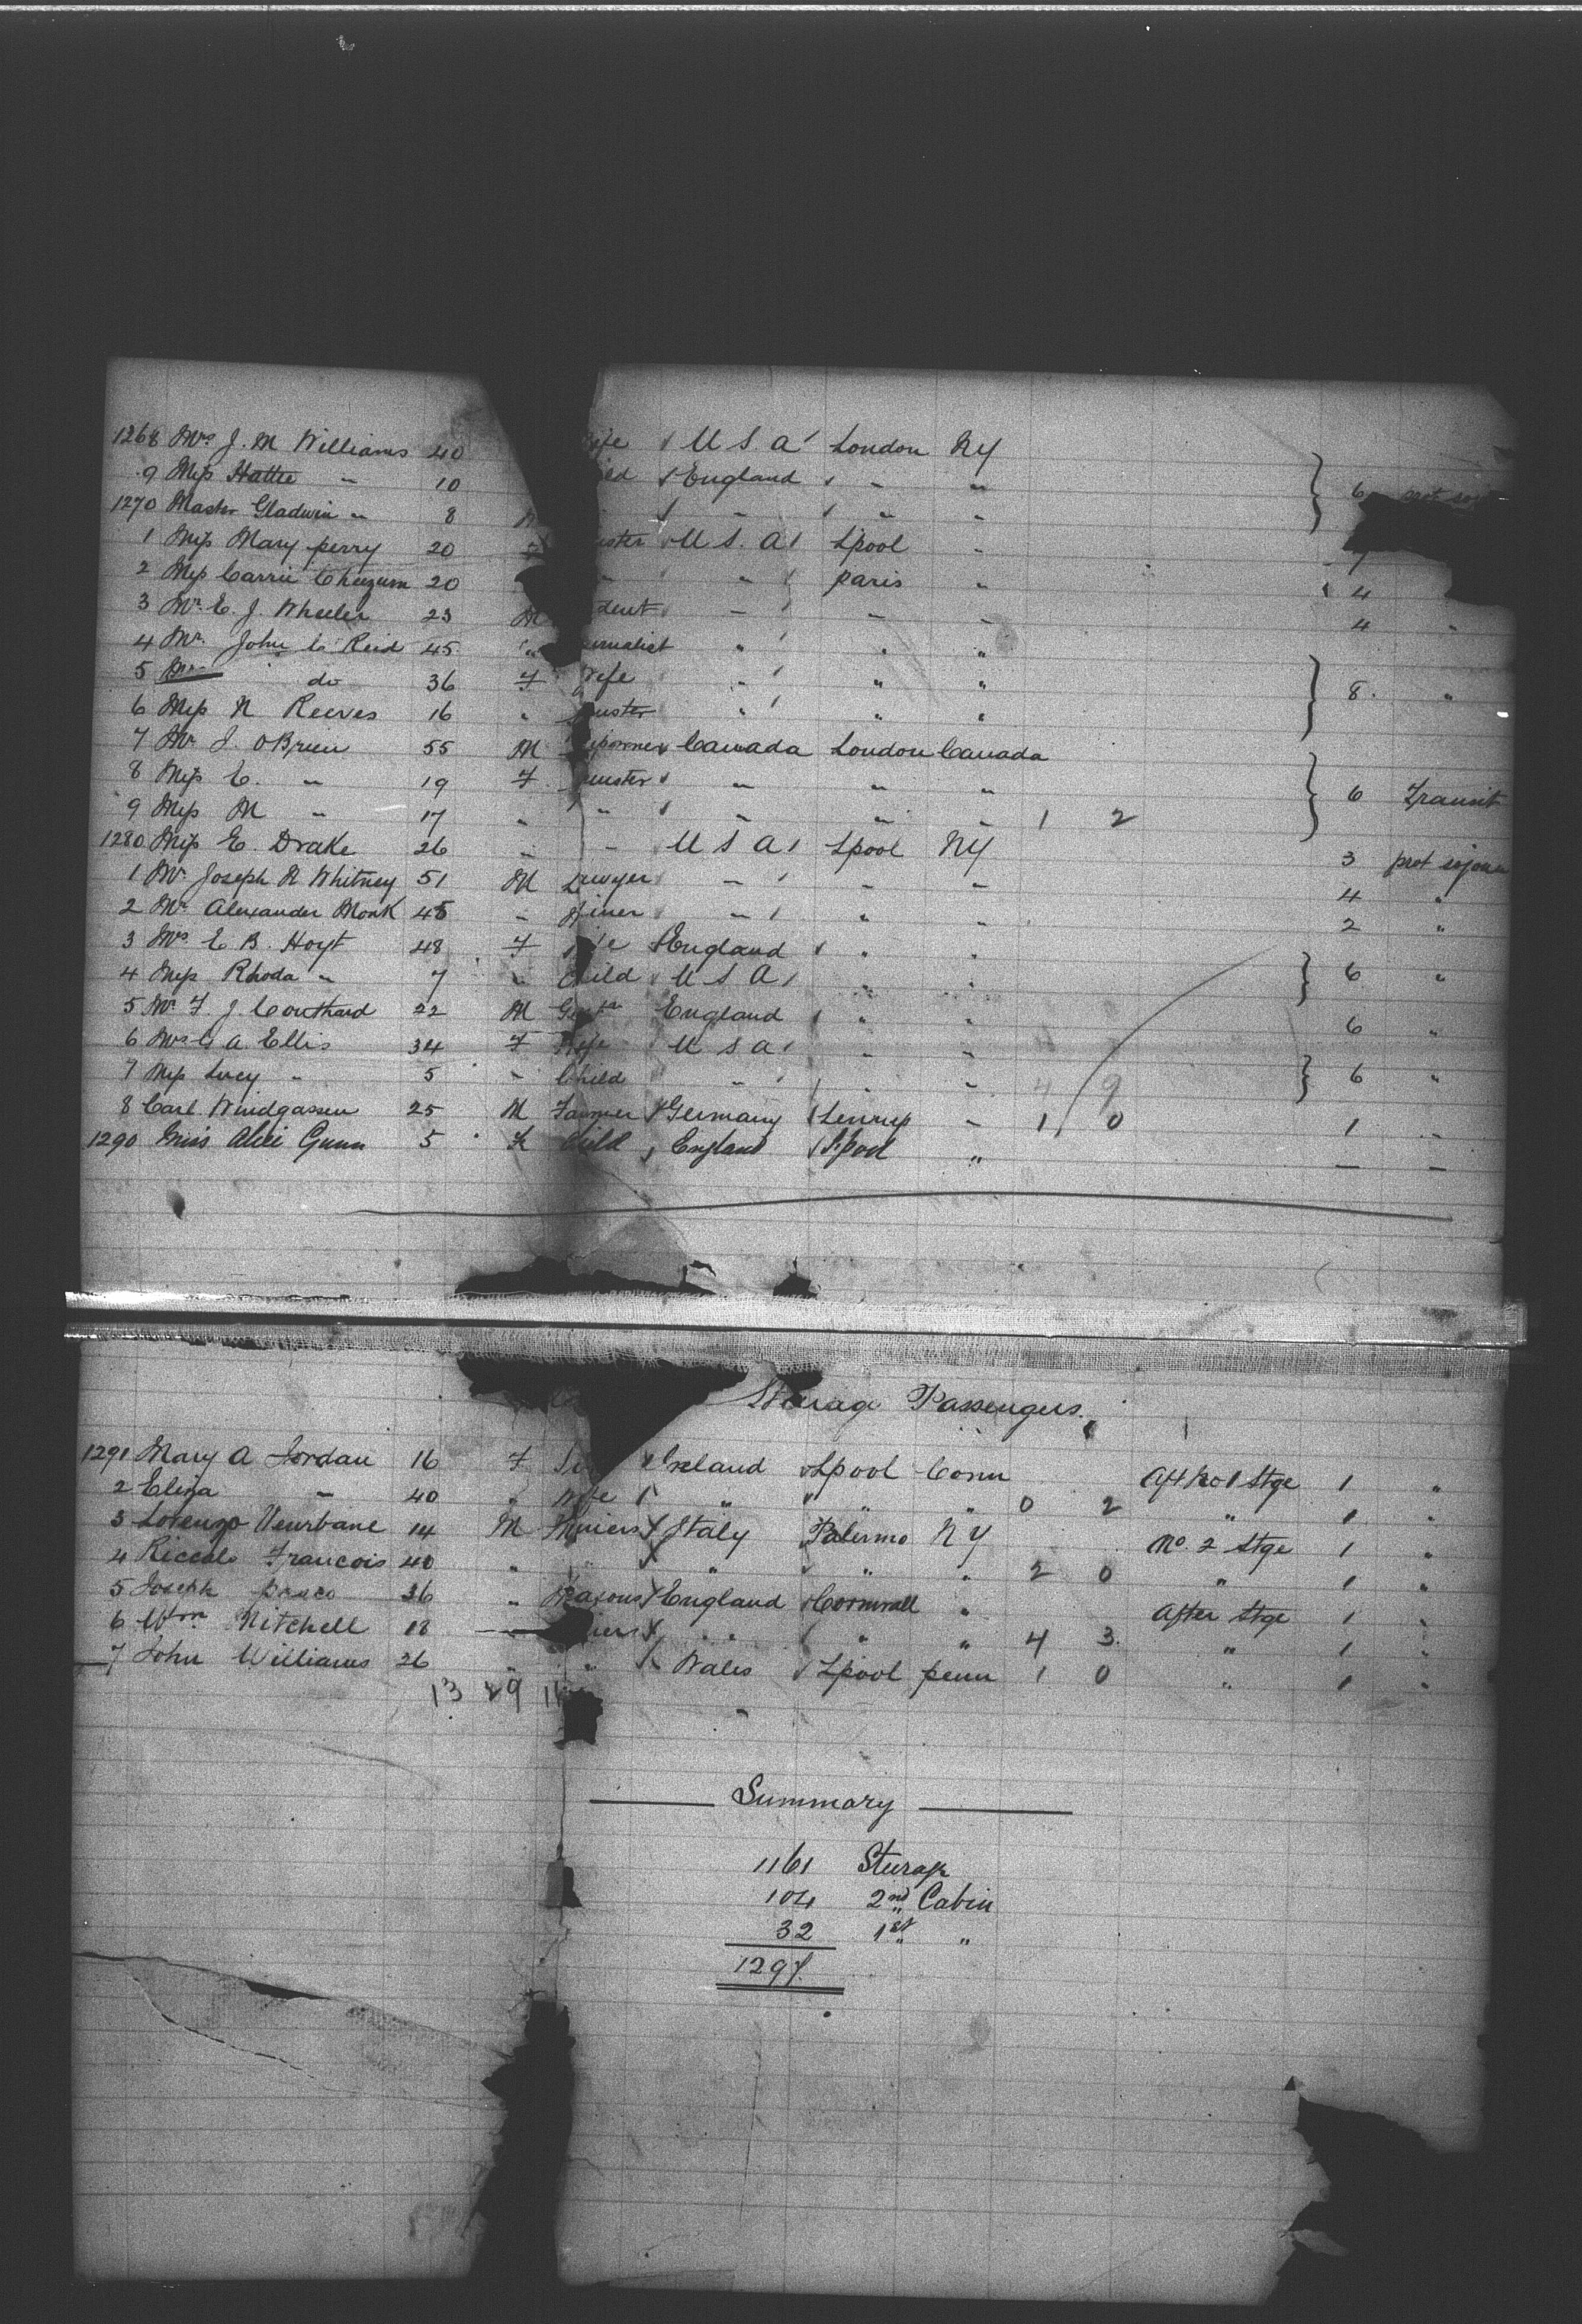 1268 Mrs J. M Williams 40 ife U S. A London NY
9 Miss Hattie " 10 ild England " " 6
1270 Master Gladwin " 8 " " "
1 Miss Mary perry 20 F nster U S. A Lpool "
2 Miss Carrie 20 " " paris " 4
3 Mr E. J. Wheeler 23 M dent " " " 4 "
4 Mr. John C Reid 45 " urnalist " " "
5 Mrs do 36 F Wife " " " 8. "
6 Miss N Reeves 16 " nster " " "
7 Mr J. OBrien 55 M Canada London Canada
8 Miss C. " 19 F unster " " " 6 Transit
9 Miss M " 17 " " " " " 1 2
1280 Miss E. Drake 26 " " U S A Lpool NY 3 prot sojourn
1 Mr Joseph R Whitney 51 M Lawyer " " " 4 "
2 Mr Alexander Monk 45 " " " " 2 "
3 Mrs E B. Hoyt 48 F England " "
4 Miss Rhoda " 7 " Child U S A " " 6 "
5 Mr F. J. Couthard 22 M England " " 6 "
6 Mrs A. Ellis 34 F Wife U S A " "
7 Miss Lucy " 5 " Child " " " 6 "
8 Carl Windgassen 25 M Farmer Germany Lennep " 1 0 1 "
1290 Miss Alice Gunn 5 F Child England Lpool " — —
Steerage Passengers.
1291 Mary A Jordan 16 F Ireland Lpool Conn Aft No 1 Stge 1 "
2 Eliza " 40 " Wife " " " 0 2 " 1 "
3 Lorenzo 14 M Miners Italy Palermo NY No. 2 Stge 1 "
4 Francois 40 " " " " " 2 0 " 1 "
5 Joseph 26 " Masons England Cornwall " After Stge 1 "
6 Wm Mitchell 18 " iers " " " 4 3. " 1 "
7 John Williams 26 " " Wales Lpool penn 1 0 " 1 "
13 29
Summary
1161 Steerage
104 2nd Cabin
32 1st "
1297